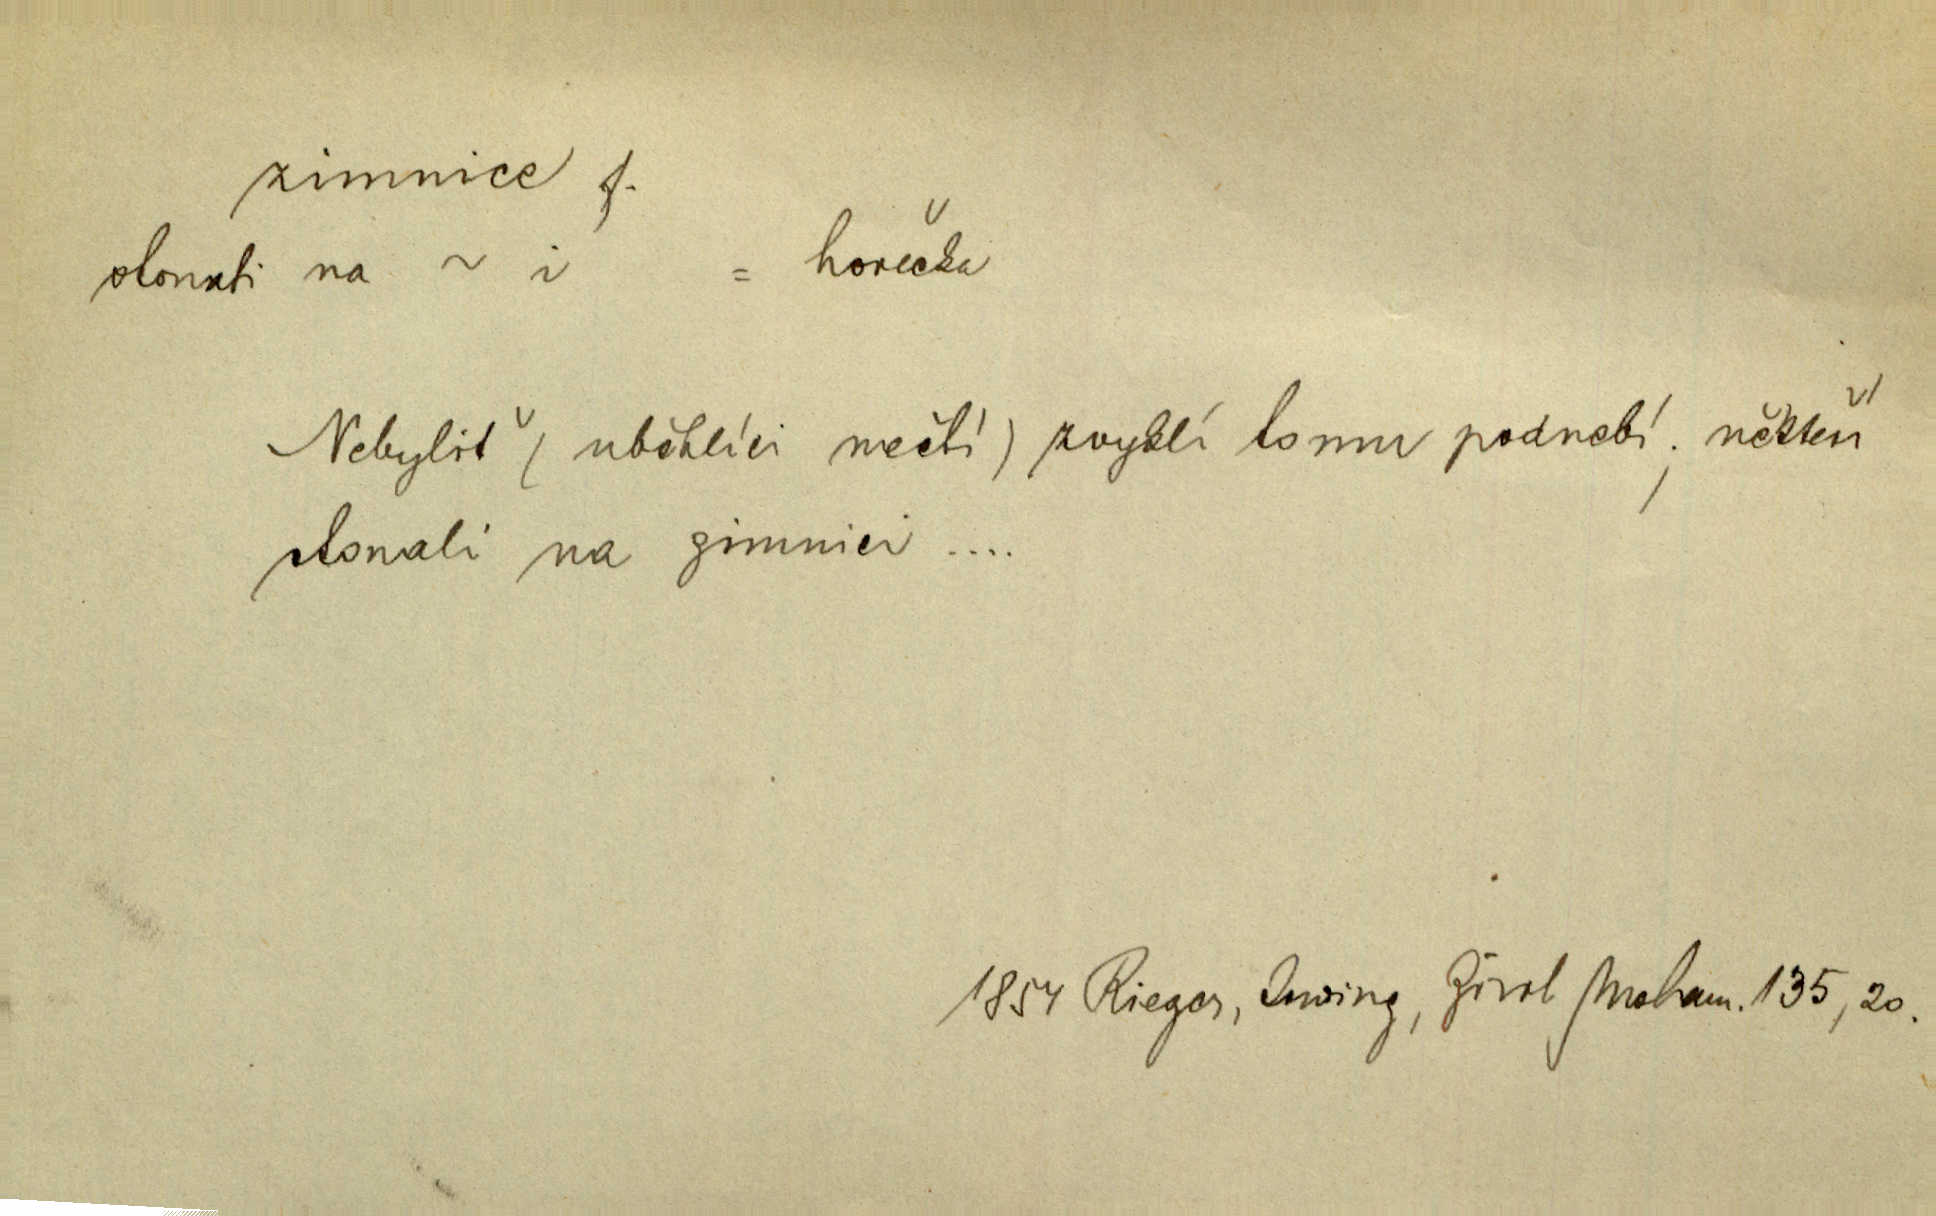 zimnice f.
stonati na ~ i = horečka
Nebyliť (uběhlíci mečtí) zvyklí tomu podnebí; někteří
stonali na zimnici ....
1854 Rieger, Irwing, Život Moham. 135, 20.